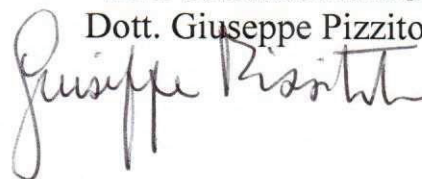 Dott. Giuseppe Pizzito
Giuseppe Pizzitola